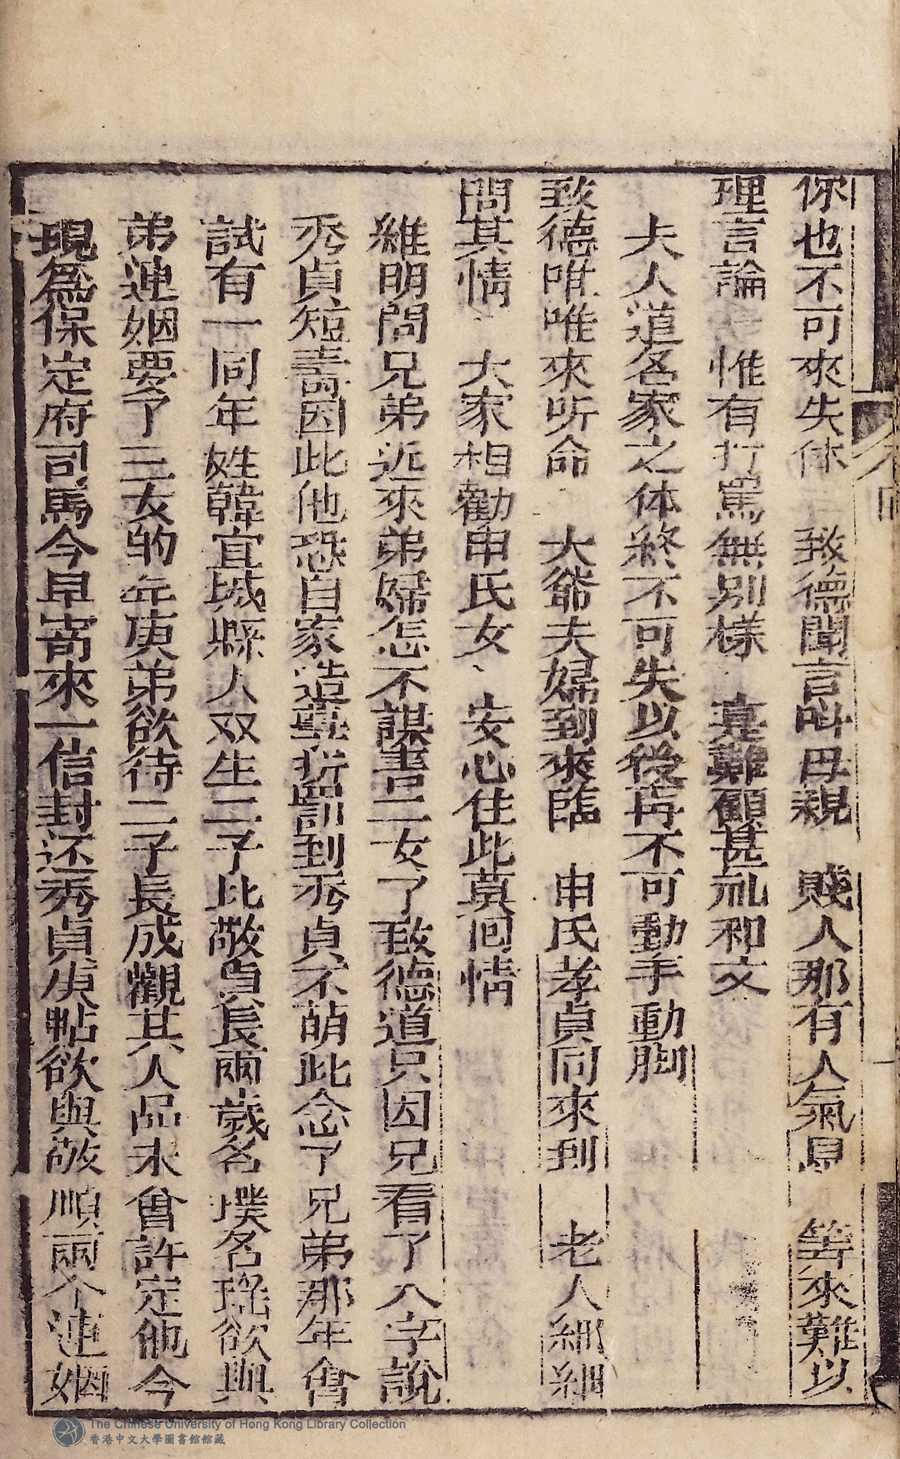 你也不可來失体　致德聞言叫母親　賤人那有人氣息　等來難以
理言論　惟有打罵無別樣　真難顧甚礼和文
夫人道各家之体終不可失以後再不可動手動脚
致德唯唯來听命　大爺夫婦到來臨　申氏孝貞同來到　老人細細
問其情　大家相勸申氏女　安心住此莫回情
維明問兄弟近來弟婦怎不謀害二女了致德道只因兄看了八字說
秀貞短壽因此他恐自家造孽折罰到秀貞不萌此念了兄弟那年會
試有一同年姓韓宜城縣人双生二子比敬貞長兩歲名璞名瑤欲與
弟連姻要了三女的年庚弟欲待二子長成觀其人品未曾許定他今
現為保定府司馬今早寄來一信封还秀貞庚帖欲與敬順兩个連姻
The Chinese University of Hong Kong Library Collection
香港中文大學圖書館館藏